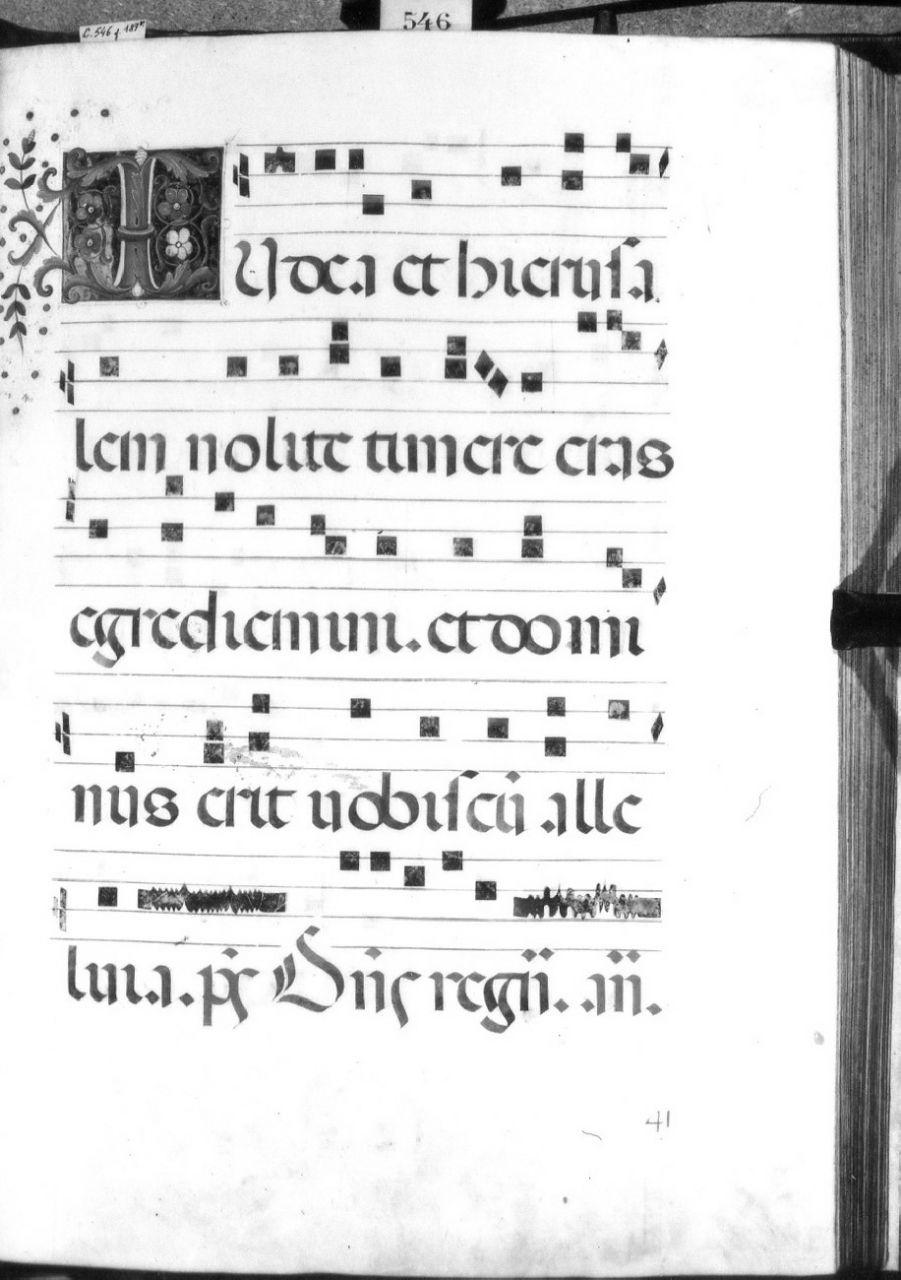 546
C. 546 f. 189r
IUdea et hierusa
lem nolite timere cras
egrediemini. et domi
nus erit uobiscū alle
luia. ps Dñs regn̄. añ.
41